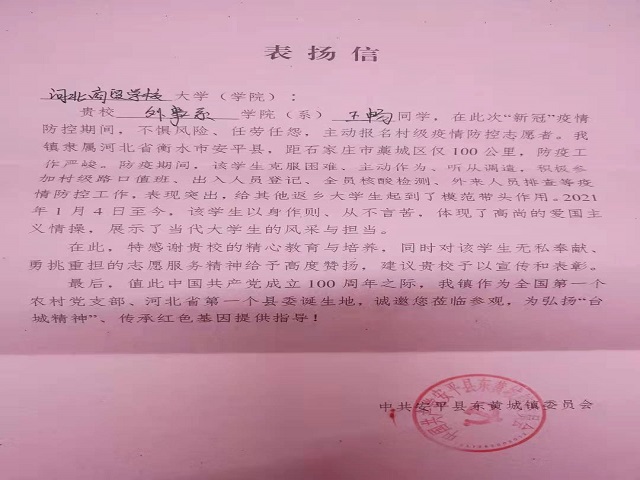 表扬信
河北商贸学校 大学（学院）：
贵校 外事系 学院（系） 王畅 同学，在此次“新冠”疫情
防控期间，不惧风险、任劳任怨，主动报名村级疫情防控志愿者。我
镇隶属河北省衡水市安平县，距石家庄市藁城区仅 100 公里，防疫工
作严峻。防疫期间，该学生克服困难、主动作为、听从调遣，积极参
加村级路口值班、出入人员登记、全员核酸检测、外来人员排查等疫
情防控工作，表现突出，给其他返乡大学生起到了模范带头作用。2021
年 1 月 4 日至今，该学生以身作则、从不言苦，体现了高尚的爱国主
义情操，展示了当代大学生的风采与担当。
在此，特感谢贵校的精心教育与培养，同时对该学生无私奉献、
勇挑重担的志愿服务精神给予高度赞扬，建议贵校予以宣传和表彰。
最后，值此中国共产党成立 100 周年之际，我镇作为全国第一个
农村党支部、河北省第一个县委诞生地，诚邀您莅临参观，为弘扬“台
城精神”、传承红色基因提供指导！
中共安平县东黄城镇委员会